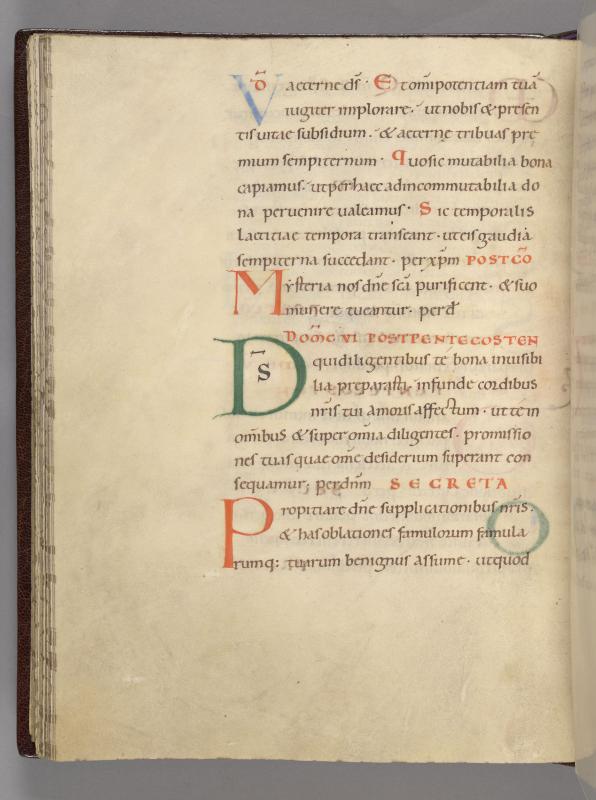 VD̄ aeterne dš · Et om̄ipotentiam tuā
iugiter implorare · ut nobis & presen
tis uitae subsidium · & aeternę tribuas prę
mium sempiternum · Quo sic mutabilia bona
capiamus · ut per haec ad incommutabilia do
na peruenire ualeamus · Sic temporalis
laetitiae tempora transeant · ut eis gaudia
sempiterna succedant · per xp̄m POST CŌ
Mysteria nos dn̄e sc̄a purificent · & suo
munere tueantur · per d
DOM̄C VI POST PENTECOSTEN
DS̄ qui diligentibus te bona inuisibi
lia preparasti · infunde cordibus
nr̄is tui amoris affectum · ut te in
om̄ibus & super om̄ia diligentes · promissio
nes tuas quae om̄e desiderium superant con
sequamur; per dn̄m SECRETA
Propitiare dn̄e supplicationibus nr̄is ·
& has oblationes famulorum famula
rumq: tuarum benignus assume · ut quod